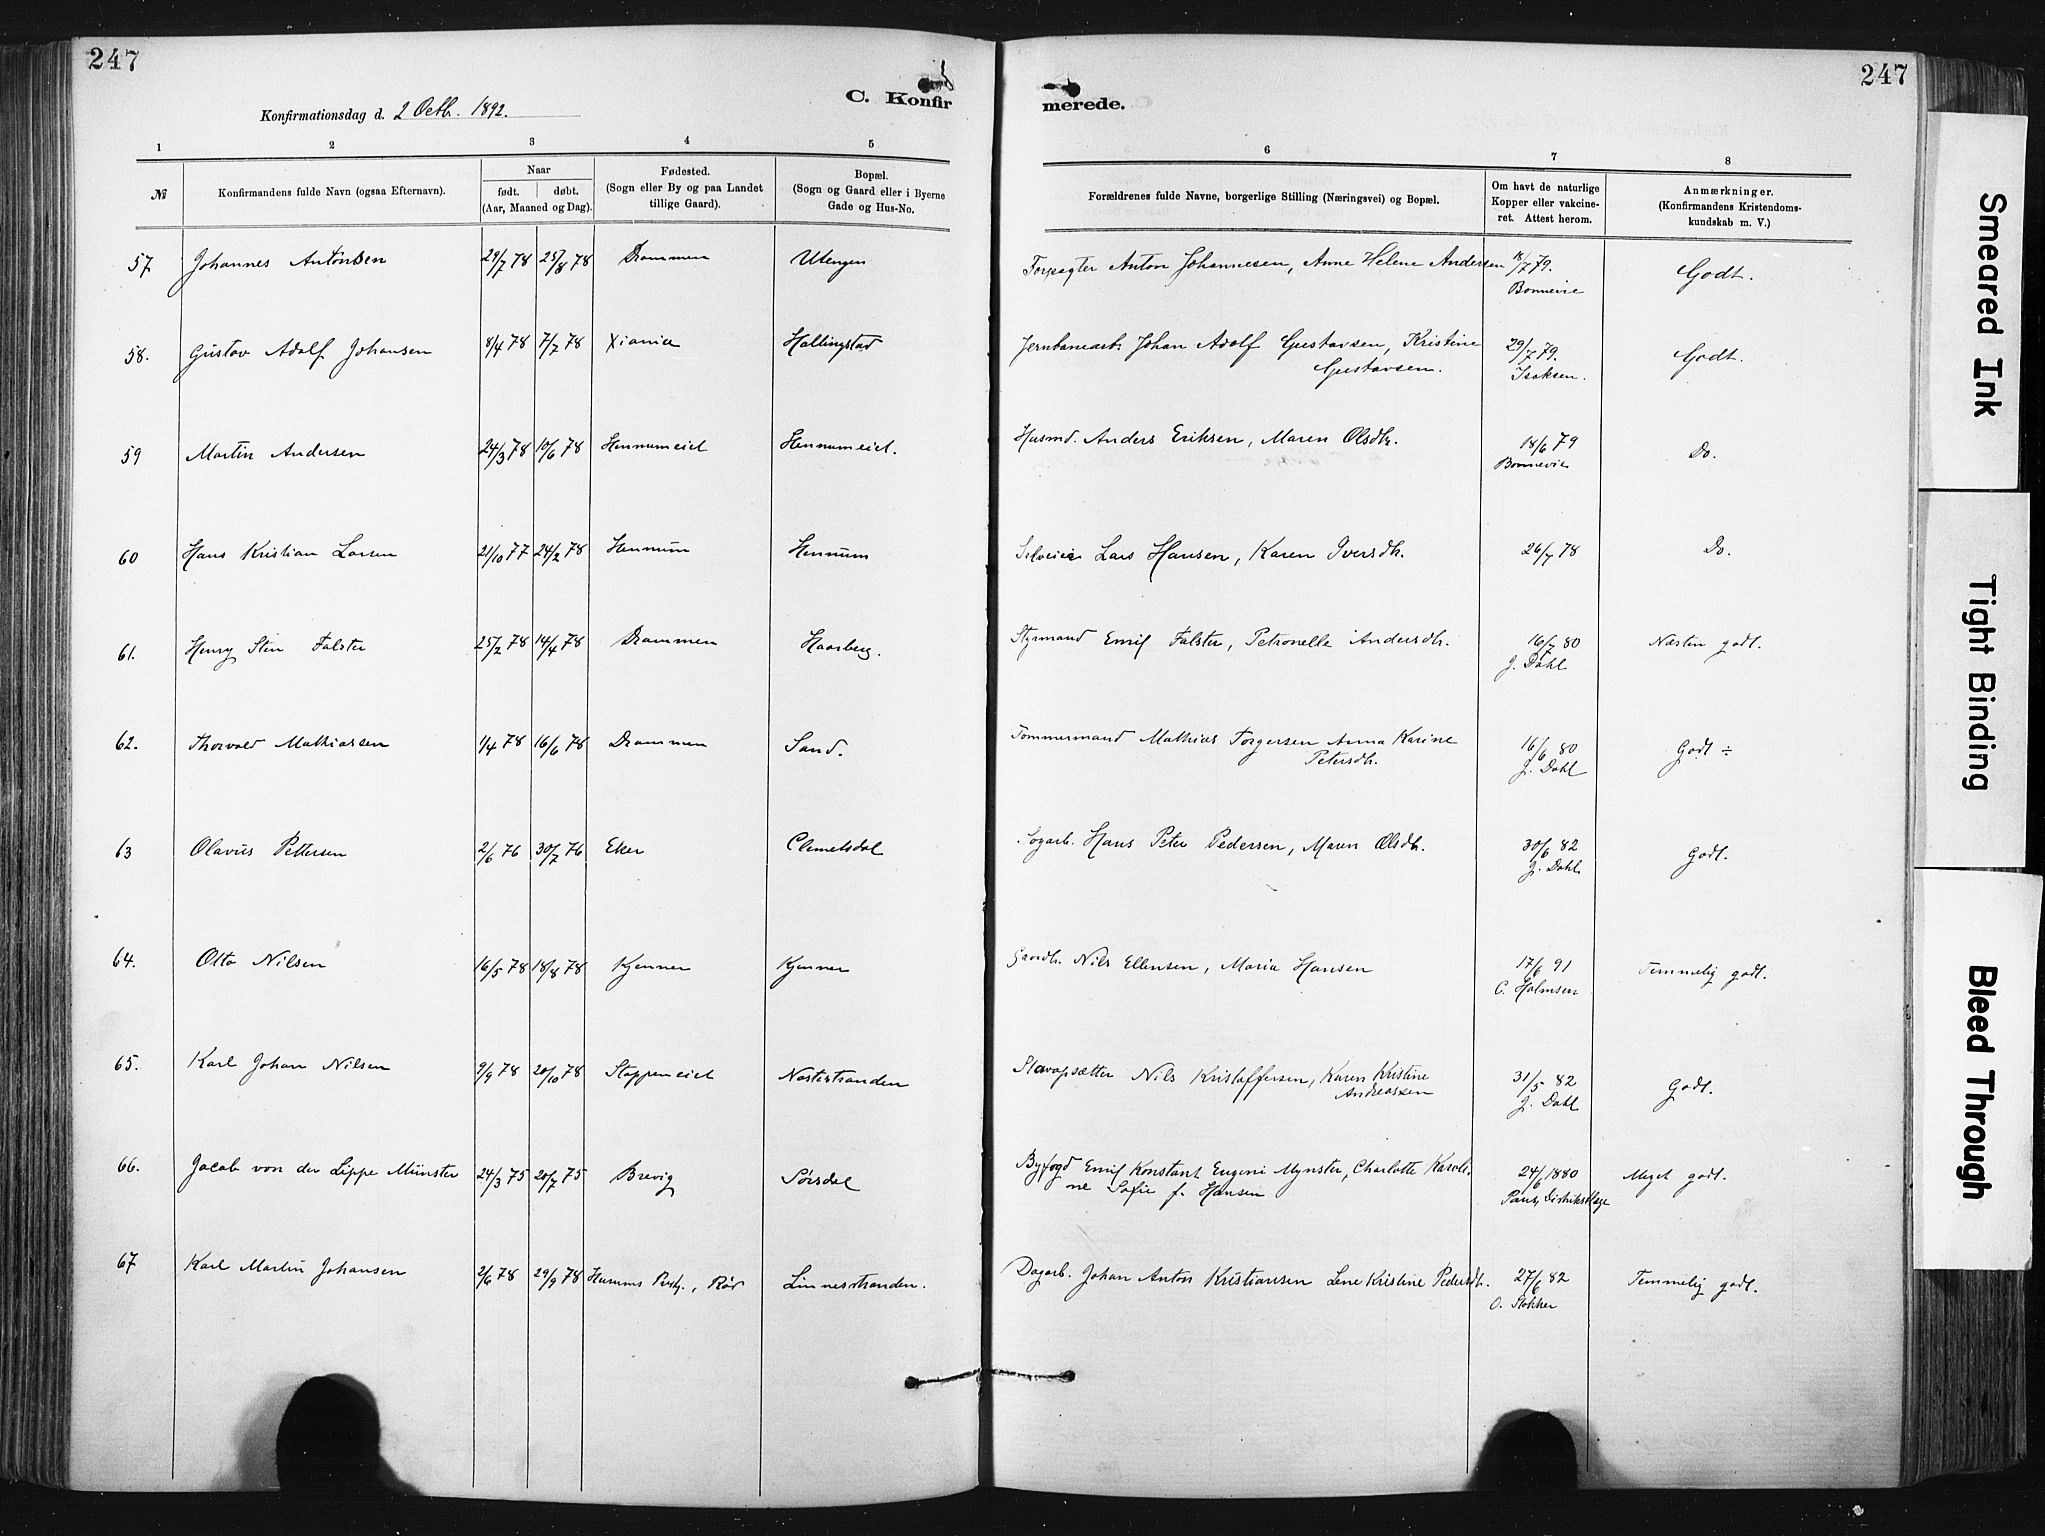 247
247
C. Konfir
merede.
Konfirmationsdag d. 2 Octb. 1892.
1 2 3 4 5 6 7 8
№ Konfirmandens fulde Navn (ogsaa Efternavn). Naar født. døbt. (Aar, Maaned og Dag). Fødested. (Sogn eller By og paa Landet tillige Gaard). Bopæl. (Sogn og Gaard eller i Byerne Gade og Hus-No.
Forældrenes fulde Navne, borgerlige Stilling (Næringsvei) og Bopæl. Om havt de naturlige Kopper eller vakcineret. Attest herom. Anmærkninger. (Konfirmandens Kristendomskundskab m. V.)
57 Johannes Antonsen 29/7 78 25/8 78 Drammen Utengen Forpagter Anton Johannesen, Anne Helene Andersen 18/7 79. Godt.
Bonnevie
58. Gustav Adolf Johansen 8/4 78 7/7 78 Xiania Hallingstad Jernbanearb. Johan Adolf Gustavsen, Kristine 29/7 79. Godt.
Gustavsen. Isaksen.
59 Martin Andersen 24/3 78 10/6 78 Hennumeiet Hennumeiet. Husmd. Anders Eriksen, Maren Olsdtr. 18/6 79 Do.
Bonnevie
60 Hans Kristian Larsen 21/10 77 24/2 78 Hennum Hennum Selveier Lars Hansen, Karen Iversdtr. 26/7 78 Do.
61. Henry Sten Falster 25/2 78 14/4 78 Drammen Haasberg. Styrmand Emil Falster, Petronelle Andersdtr. 16/7 80 Næsten godt.
J. Dahl
62. Thorvald Mathiassen 1/4 78 16/6 78 Drammen Sand. Tømmermand Mathias Torgersen Anna Karine 16/6 80 Godt ÷
Petersdtr. J. Dahl
63 Olavus Pettersen 2/6 76 30/7 76 Eker Clemetsdal Hans Peter Pedersen, Maren Olsdtr. 30/6 82 Godt.
J. Dahl
64. Otto Nilsen 16/5 78 18/8 78 Kjenner Kjenner Gaardbr. Nils Ellensen, Maria Hansen 17/6 91 Temmelig godt.
C. Holmsen
65. Karl Johan Nilsen 9/9 78 20/10 78 Stoppeneiet Nøstestranden Stavopsætter Nils Kristoffersen, Karen Kristine 31/5 82 Godt.
Andreassen J. Dahl
66. Jacob von der Lippe Münster 24/3 75 20/7 75 Brevig Sørsdal Byfogd Emil Konstant Eugeni Mynster, Charlotte Karoli- 24/6 1880 Meget godt.
ne Sofie f. Hansen Paus, Distriktslæge
67 Karl Martin Johansen 2/6 78 29/9 78 Hurums Prstgj., Rør Linnesstranden. Dagarb. Johan Anton Kristiansen Lene Kristine Pedersdtr. 27/6 82 Temmelig godt.
O. Stokker
Smeared Ink
Tight Binding
Bleed Through